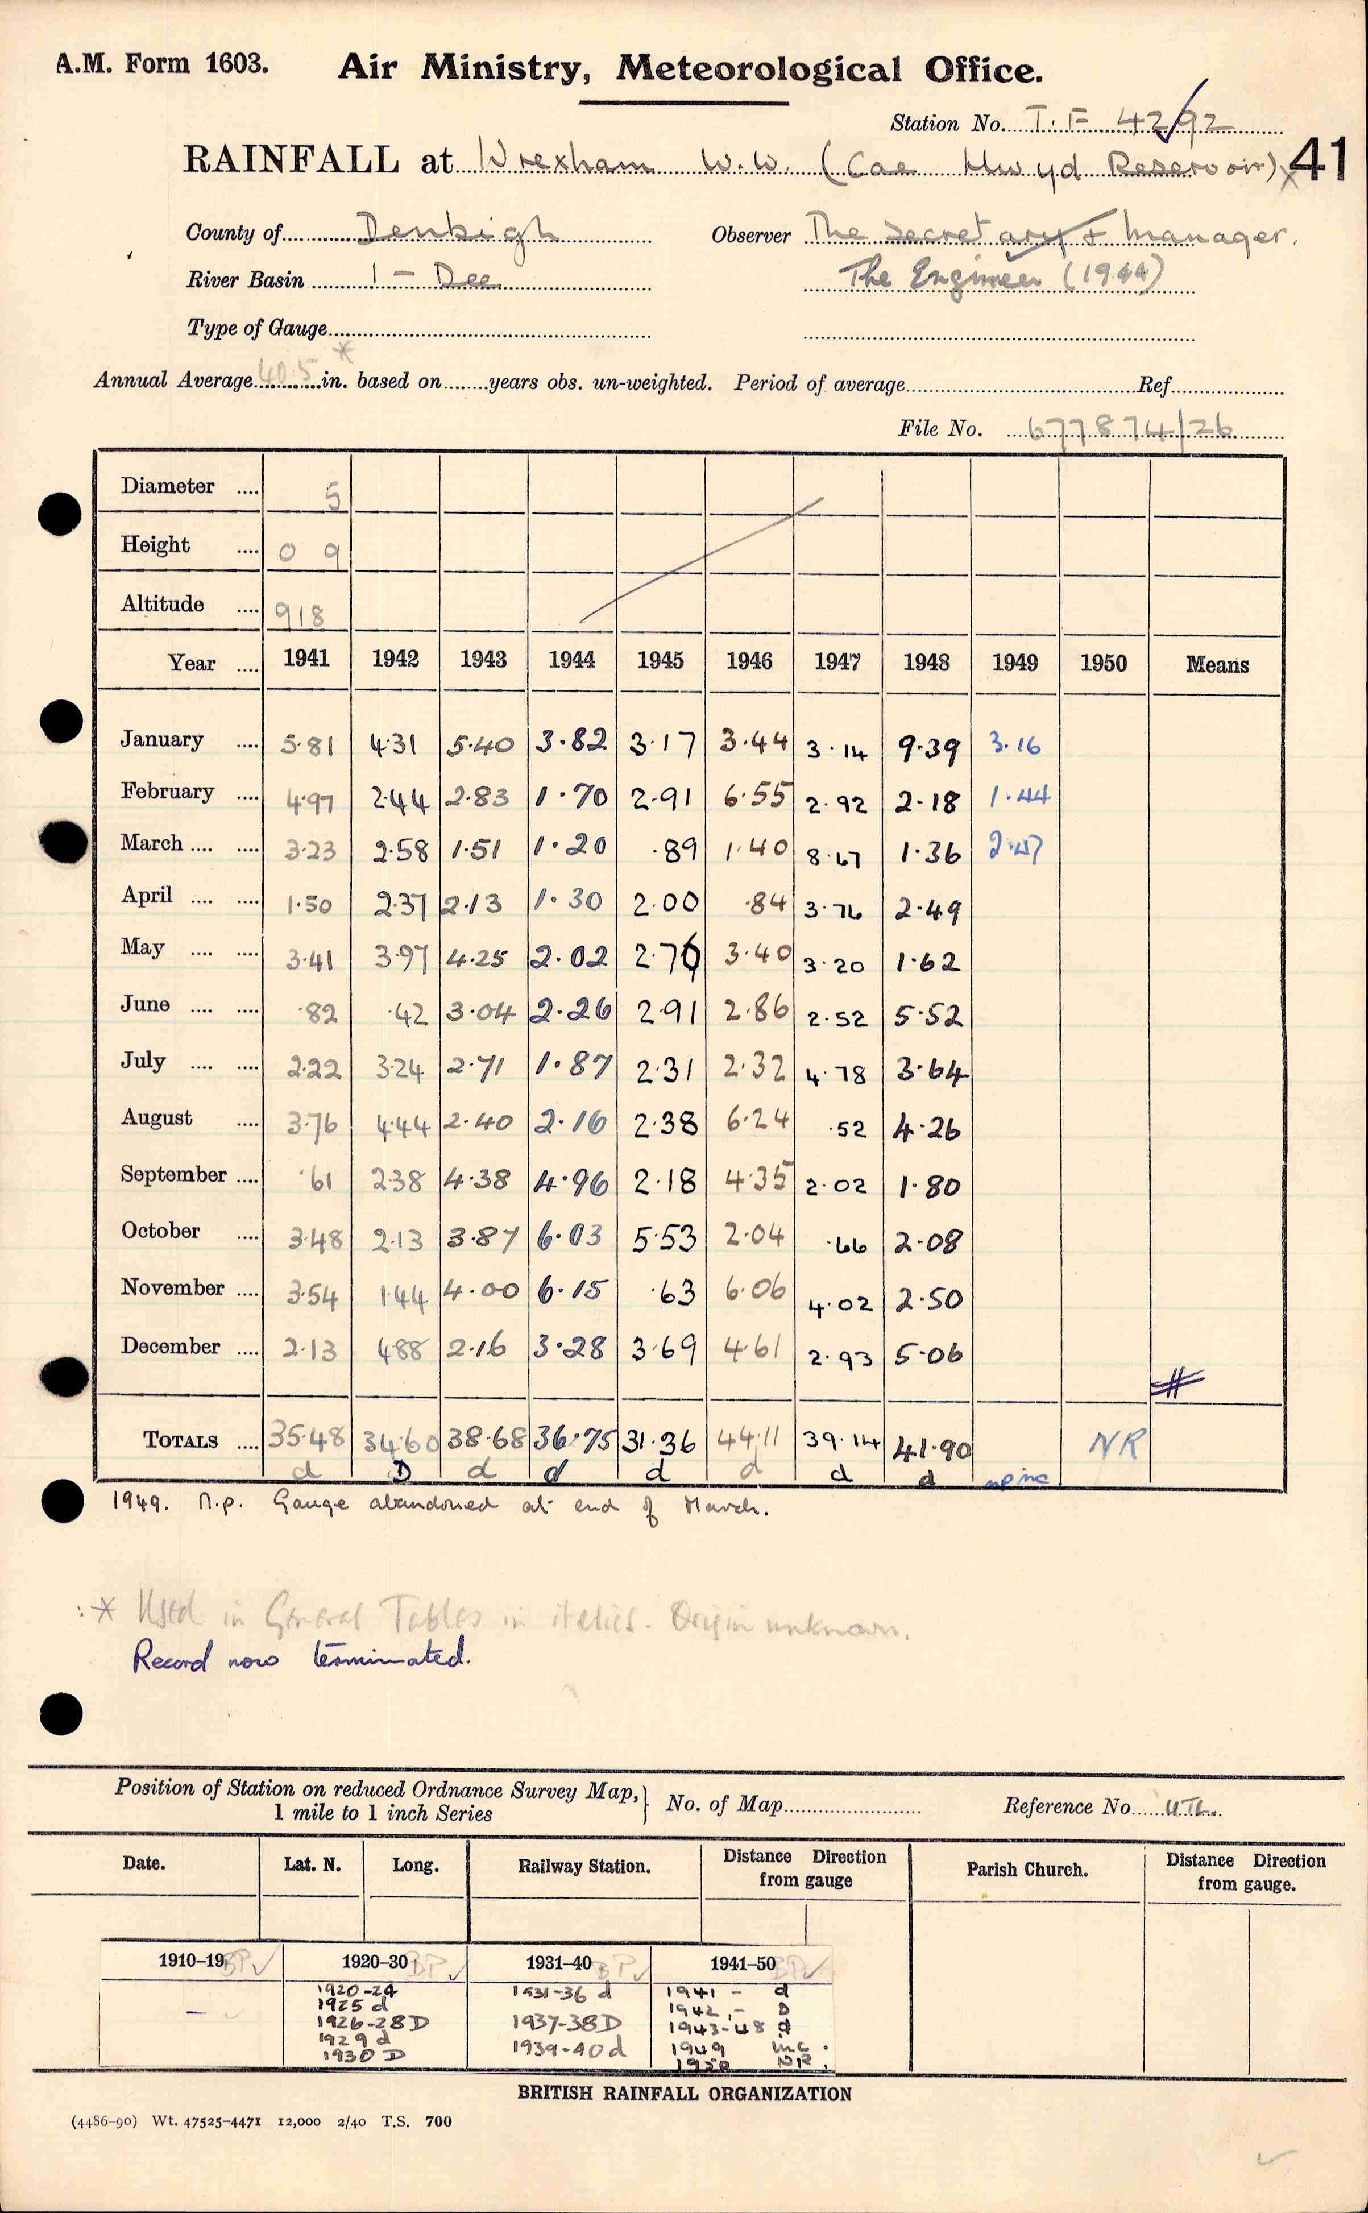 A.M. Form 1603. Air Ministry, Meteorological Office.
Station No. T.F 42/92
RAINFALL at Wrexham W.W. (Cae Llwyd Reservoir) x 41
County of Denbigh Observer The Secretary & Manager.
River Basin 1 - Dee The Engineer (1944)
Type of Gauge
Annual Average 40.5 * in. based on years obs. un-weighted. Period of average Ref.
File No. 677874/26
Diameter .... 5
Height .... 0 9
Altitude .... 918
Year .... 1941 1942 1943 1944 1945 1946 1947 1948 1949 1950 Means
January .... 5.81 4.31 5.40 3.82 3.17 3.44 3.14 9.39 3.16
February .... 4.97 2.44 2.83 1.70 2.91 6.55 2.92 2.18 1.44
March .... .... 3.23 2.58 1.51 1.20 .89 1.40 8.67 1.36 2.47
April .... .... 1.50 2.37 2.13 1.30 2.00 .84 3.76 2.49
May .... .... 3.41 3.97 4.25 2.02 2.76 3.40 3.20 1.62
June .... .... .82 .42 3.04 2.26 2.91 2.86 2.52 5.52
July .... .... 2.22 3.24 2.71 1.87 2.31 2.32 4.78 3.64
August .... 3.76 4.44 2.40 2.16 2.38 6.24 .52 4.26
September .... .61 2.38 4.38 4.96 2.18 4.35 2.02 1.80
October .... 3.48 2.13 3.87 6.03 5.53 2.04 .66 2.08
November .... 3.54 1.44 4.00 6.15 .63 6.06 4.02 2.50
December .... 2.13 4.88 2.16 3.28 3.69 4.61 2.93 5.06
TOTALS .... 35.48 34.60 38.68 36.75 31.36 44.11 39.14 41.90 NR
d D d d d d d d np inc
1949. n.p. Gauge abandoned at end of March.
* Used in General Tables in italics. Origin unknown.
Record now terminated.
Position of Station on reduced Ordnance Survey Map, 1 mile to 1 inch Series } No. of Map Reference No UTL.
Date. Lat. N. Long. Railway Station. Distance Direction from gauge Parish Church. Distance Direction from gauge.
1910-19 BP✓ 1920-30 BP✓ 1931-40 BP✓ 1941-50 BP✓
— 1920-24 1931-36 d 1941 - d
1925 d 1942 - D
1926-28 D 1937-38 D 1943-48 d
1929 d 1939-40 d 1949 inc.
1930 D 1950 NR.
BRITISH RAINFALL ORGANIZATION
(4486-90) Wt. 47525-4471 12,000 2/40 T.S. 700